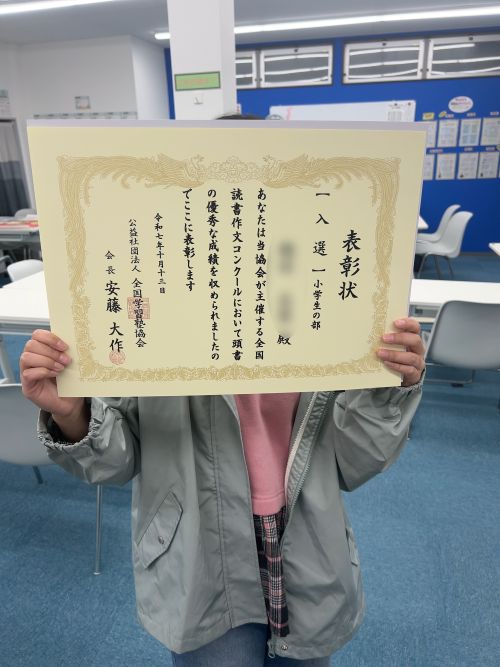 表彰状
【入選】小学生の部
殿
あなたは当協会が主催する全国
読書作文コンクールにおいて頭書
の優秀な成績を収められましたの
でここに表彰します
令和七年十月十三日
公益社団法人 全国学習塾協会
会長 安藤大作